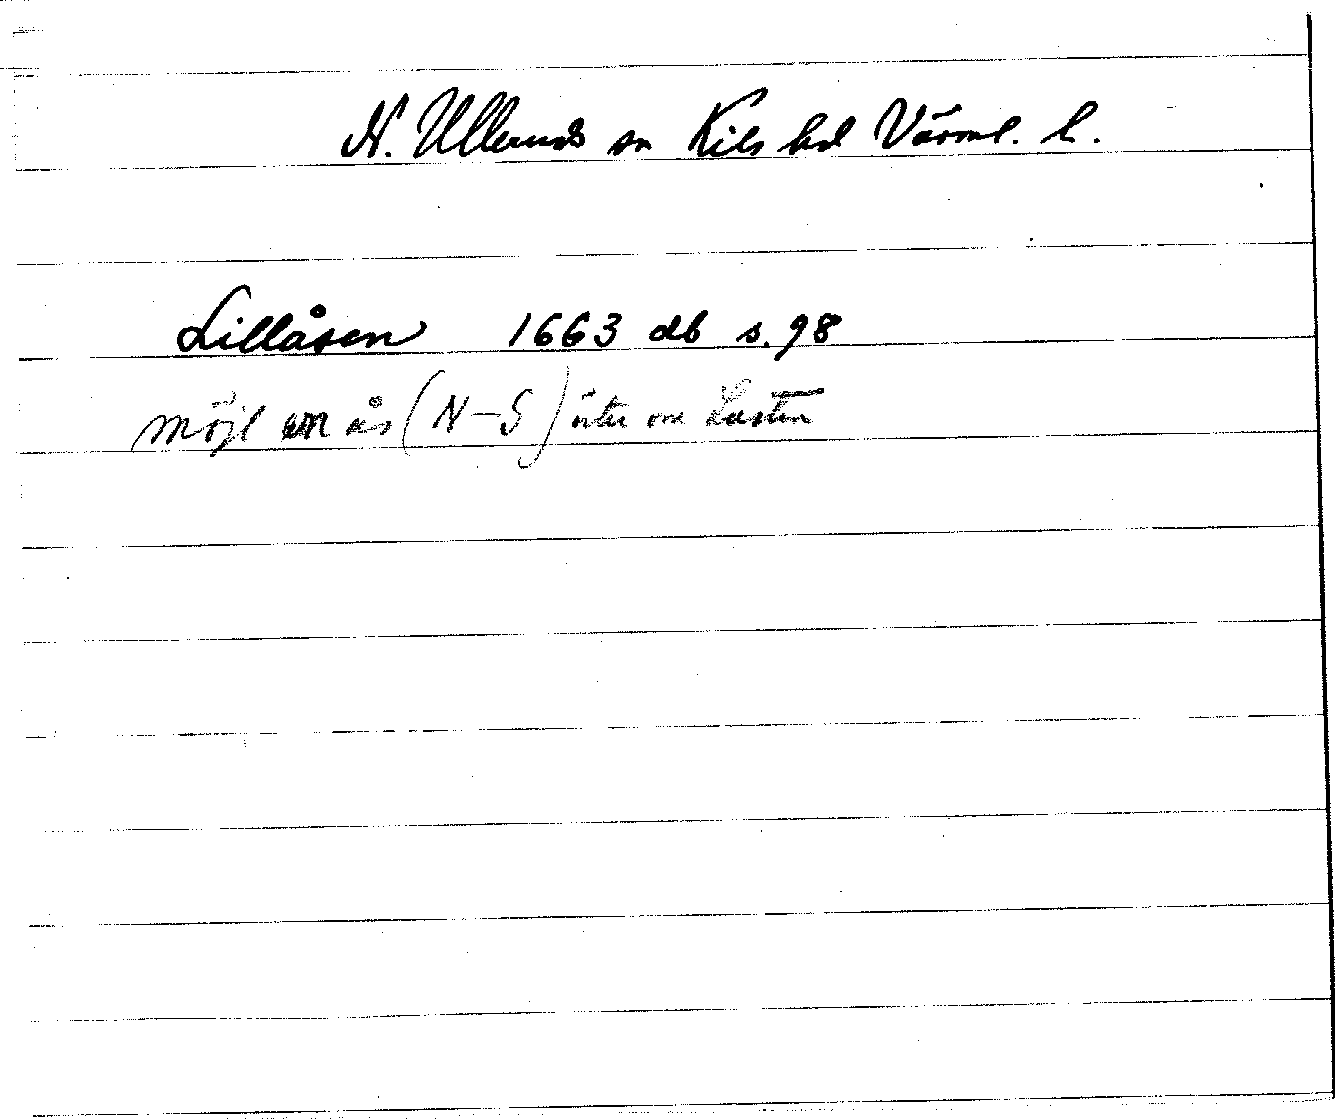 N. Ullerud sn Kils hd Värml. l.
Lillåsen 1663 db s. 98
möjl ås (N-S) öster om Lusten